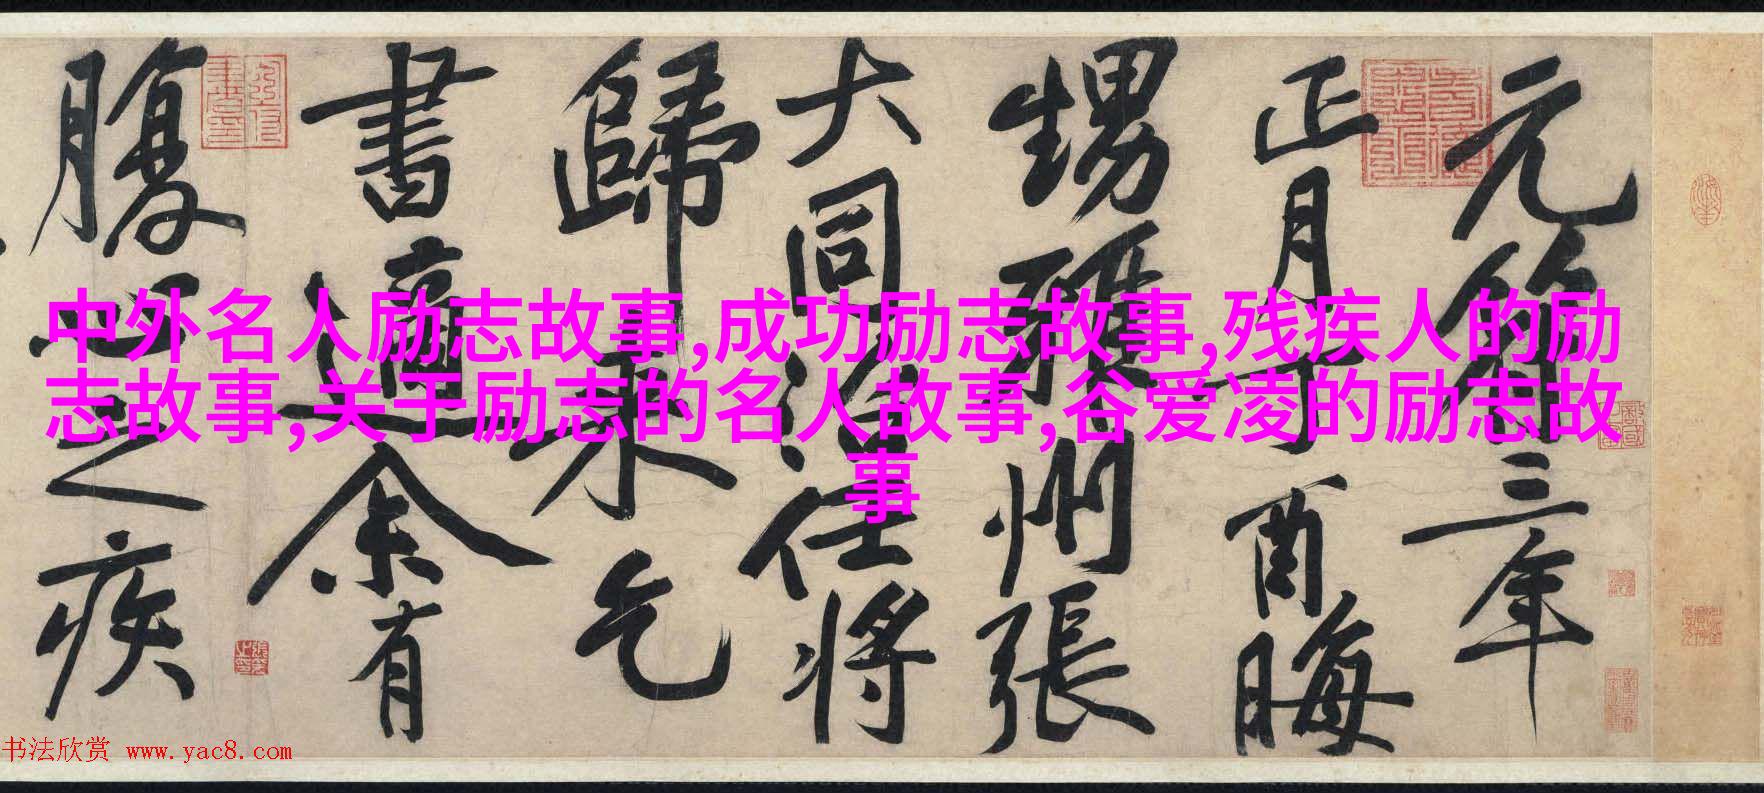 中外名人励志故事,成功励志故事,残疾人的励
志故事,关于励志的名人故事,谷爱凌的励志故
事
元符三年
正月丁酉晦
甥雅州張
大同治任將
歸來乞
書適余有
腹心之疾
书法欣赏 www.yac8.com